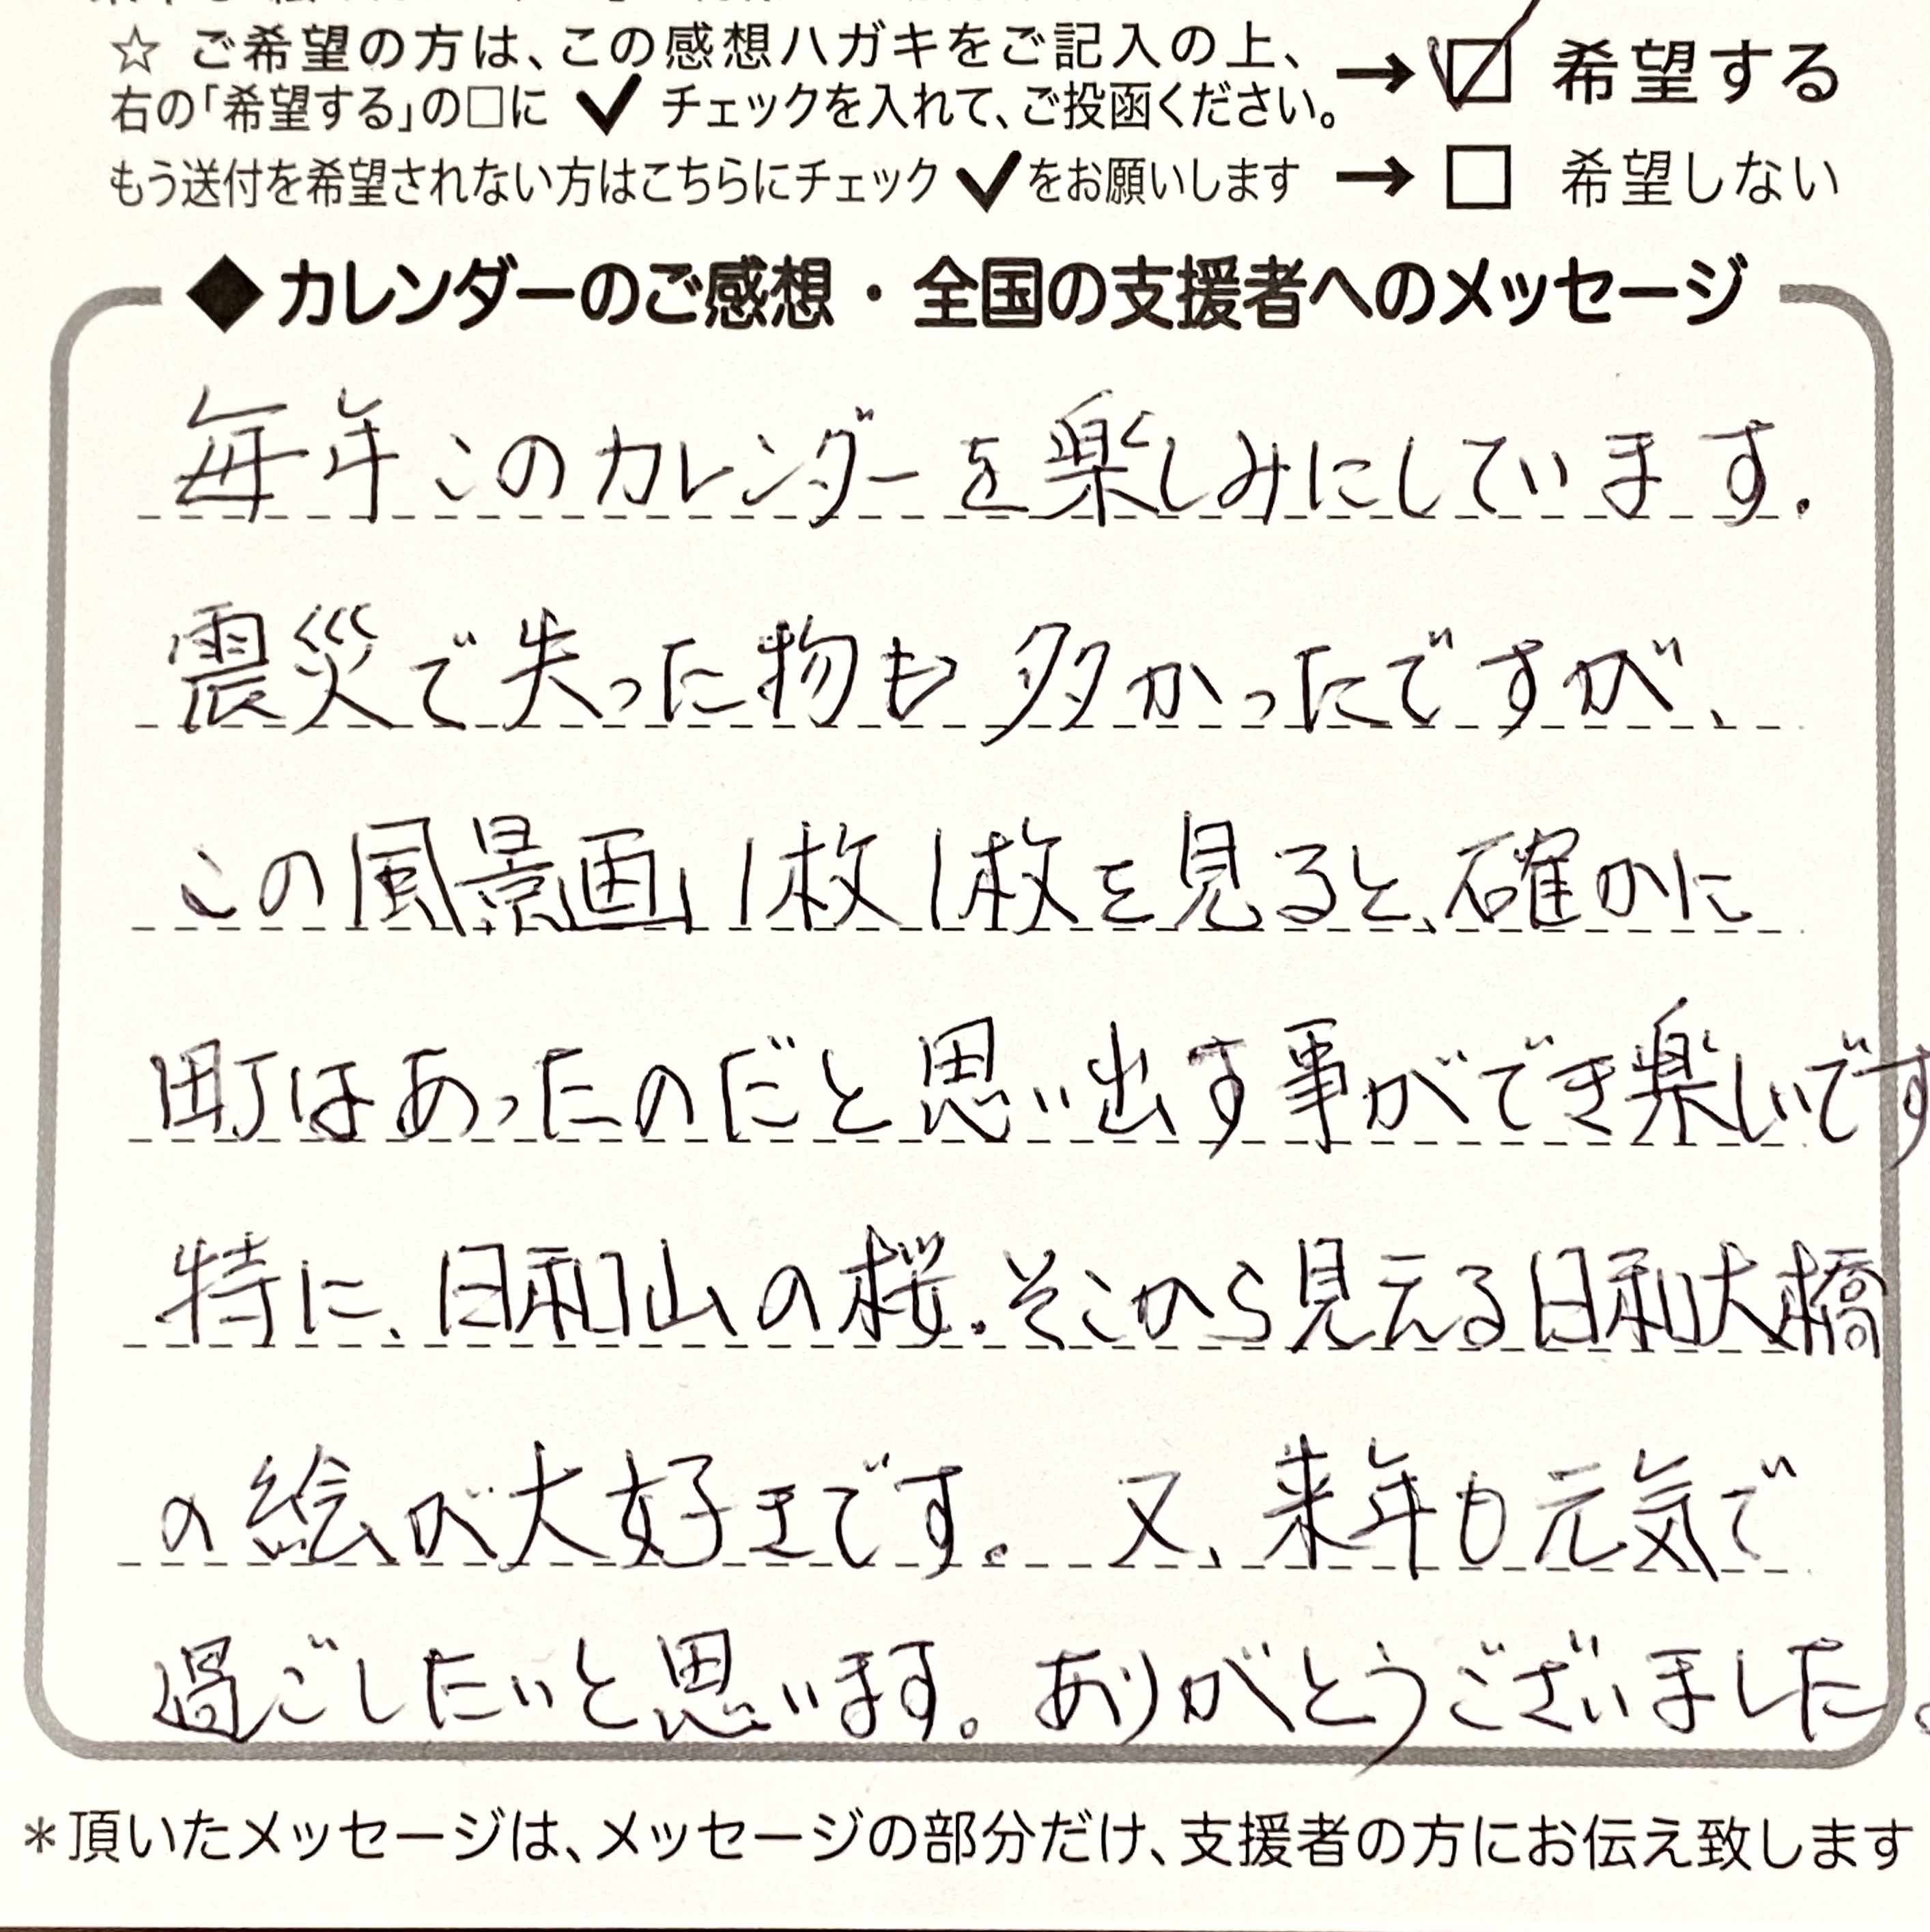 ☆ ご希望の方は、この感想ハガキをご記入の上、
右の「希望する」の□に ✓ チェックを入れて、ご投函ください。→ ☑ 希望する
もう送付を希望されない方はこちらにチェック ✓ をお願いします → □ 希望しない
◆カレンダーのご感想・全国の支援者へのメッセージ
毎年このカレンダーを楽しみにしています.
震災で失った物も多かったですが、
この風景画1枚1枚を見ると、確かに
町はあったのだと思い出す事ができ楽しいです
特に、日和山の桜.そこから見える日和大橋
の絵が大好きです。又、来年も元気で
過ごしたいと思います。ありがとうございました。
＊頂いたメッセージは、メッセージの部分だけ、支援者の方にお伝え致します